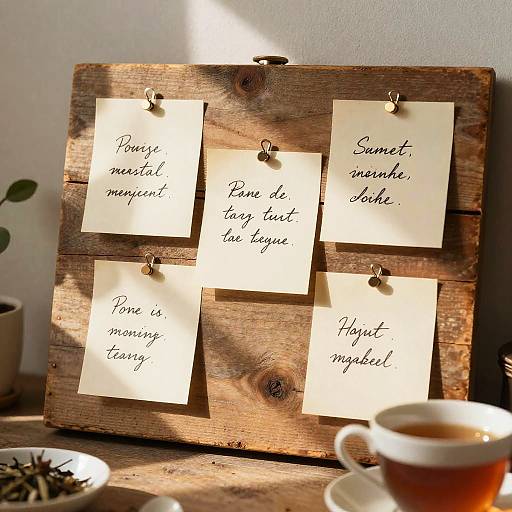 Pouise
meastal.
menjcent.
Rane de.
tarz turt.
lae tegue.
Sumet.
ineinhe,
doihe.
Pone is.
moning.
teang.
Hajut.
mgakeel.